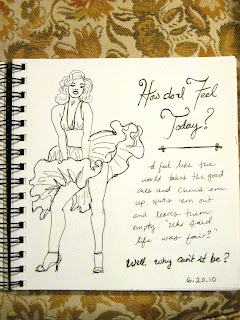 How do I Feel
Today?
I feel like the
world takes the good
ones and chews 'em
up, spits 'em out
and leaves them
empty. "Who said
life was fair?"
Well, why can't it be?
6.20.10